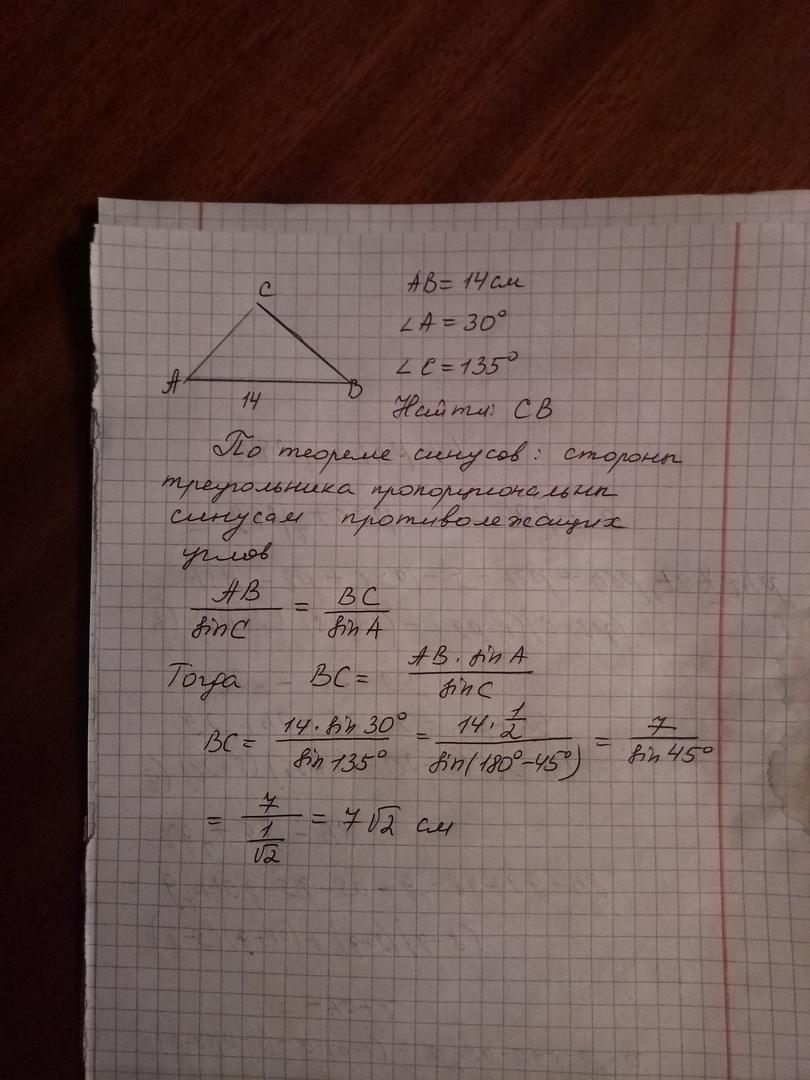 C
A
B
14
AB = 14 см
∠A = 30°
∠C = 135°
Найти: CB
По теореме синусов: стороны
треугольника пропорциональны
синусам противолежащих
углов
AB/sin C = BC/sin A
Тогда BC = AB · sin A/sin C
BC = 14 · sin 30°/sin 135° = 14 · 1/2/sin(180° - 45°) = 7/sin 45°
= 7/1/√2 = 7√2 см